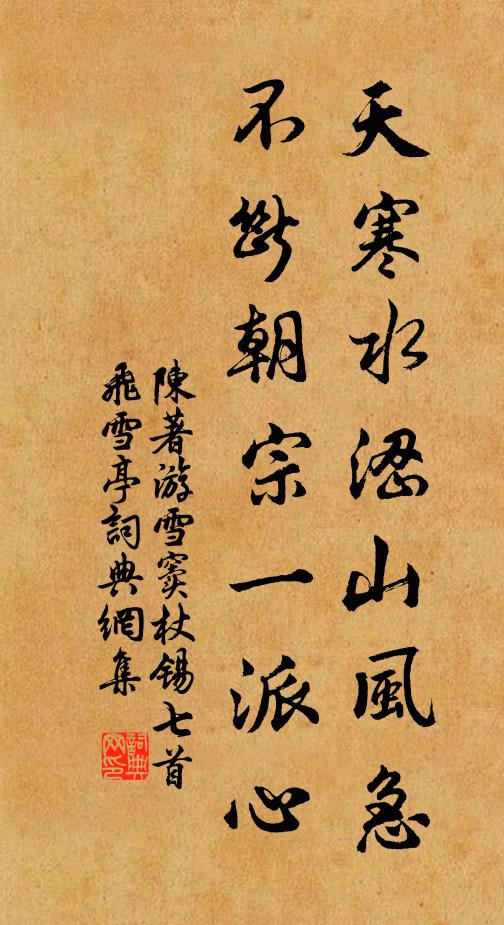 天寒水澀山風急
不斷朝宗一派心
陳著游雪竇杖錫七首
飛雪亭詞典網集
詞典
网印